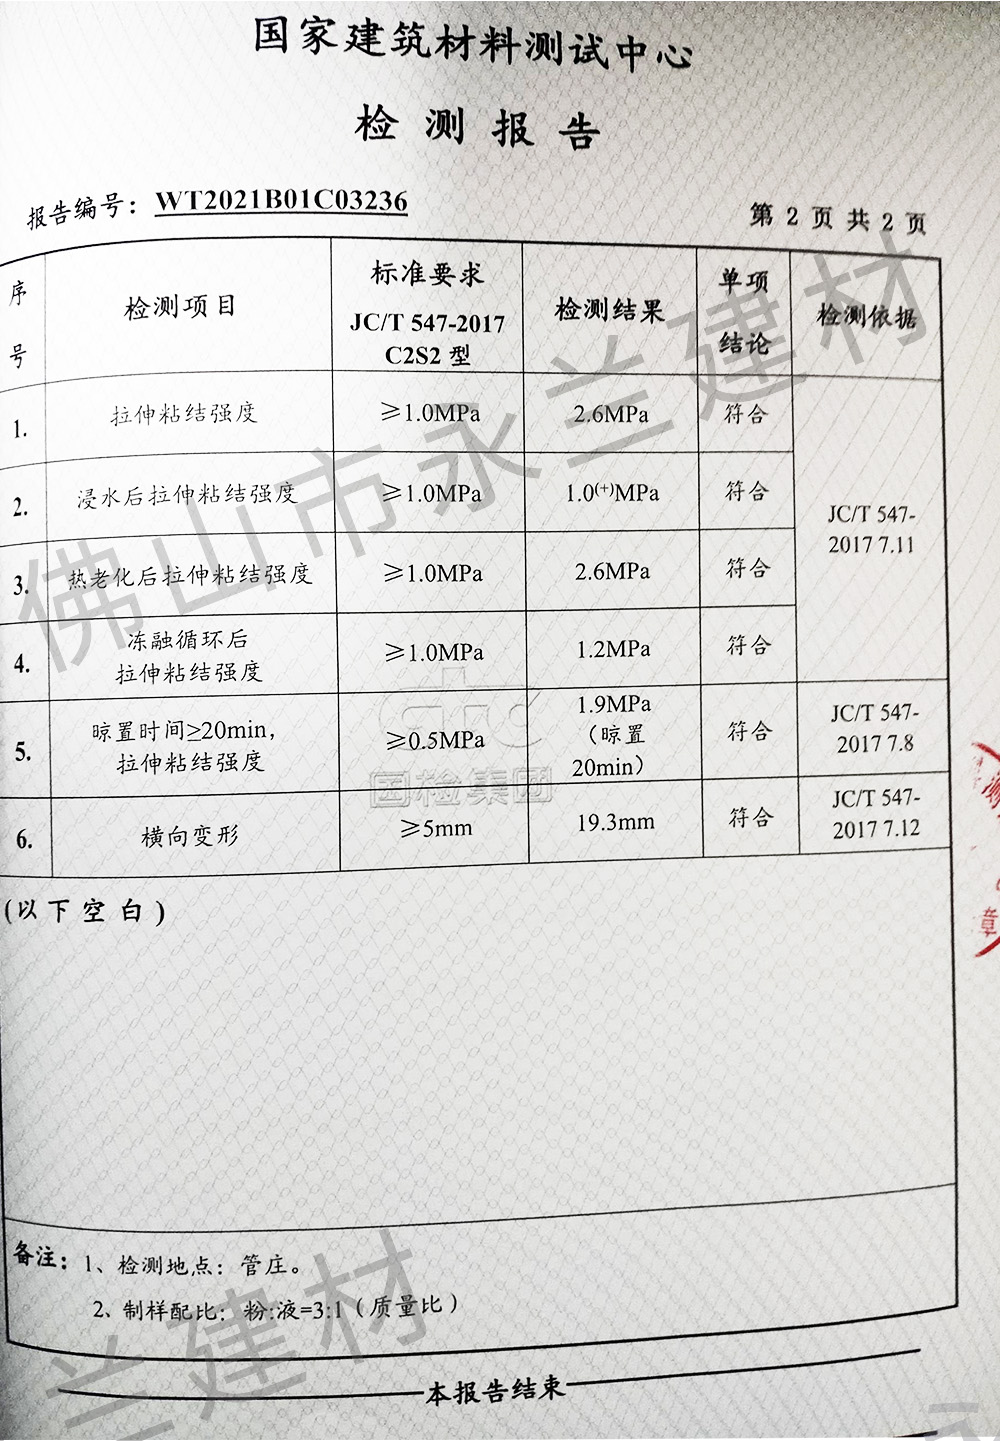 国家建筑材料测试中心
检测报告
报告编号：WT2021B01C03236
第 2 页 共 2 页
序号 检测项目 标准要求 JC/T 547-2017 C2S2 型 检测结果 单项结论 检测依据
1. 拉伸粘结强度 ≥1.0MPa 2.6MPa 符合
2. 浸水后拉伸粘结强度 ≥1.0MPa 1.0(+)MPa 符合
JC/T 547-
2017 7.11
3. 热老化后拉伸粘结强度 ≥1.0MPa 2.6MPa 符合
4. 冻融循环后拉伸粘结强度 ≥1.0MPa 1.2MPa 符合
5. 晾置时间≥20min，拉伸粘结强度 ≥0.5MPa 1.9MPa（晾置20min） 符合 JC/T 547-2017 7.8
6. 横向变形 ≥5mm 19.3mm 符合 JC/T 547-2017 7.12
(以下空白)
备注：1、检测地点：管庄。
2、制样配比：粉:液=3:1（质量比）
本报告结束
佛山市永兰建材
ctc
国检集团
兰建材
测
章